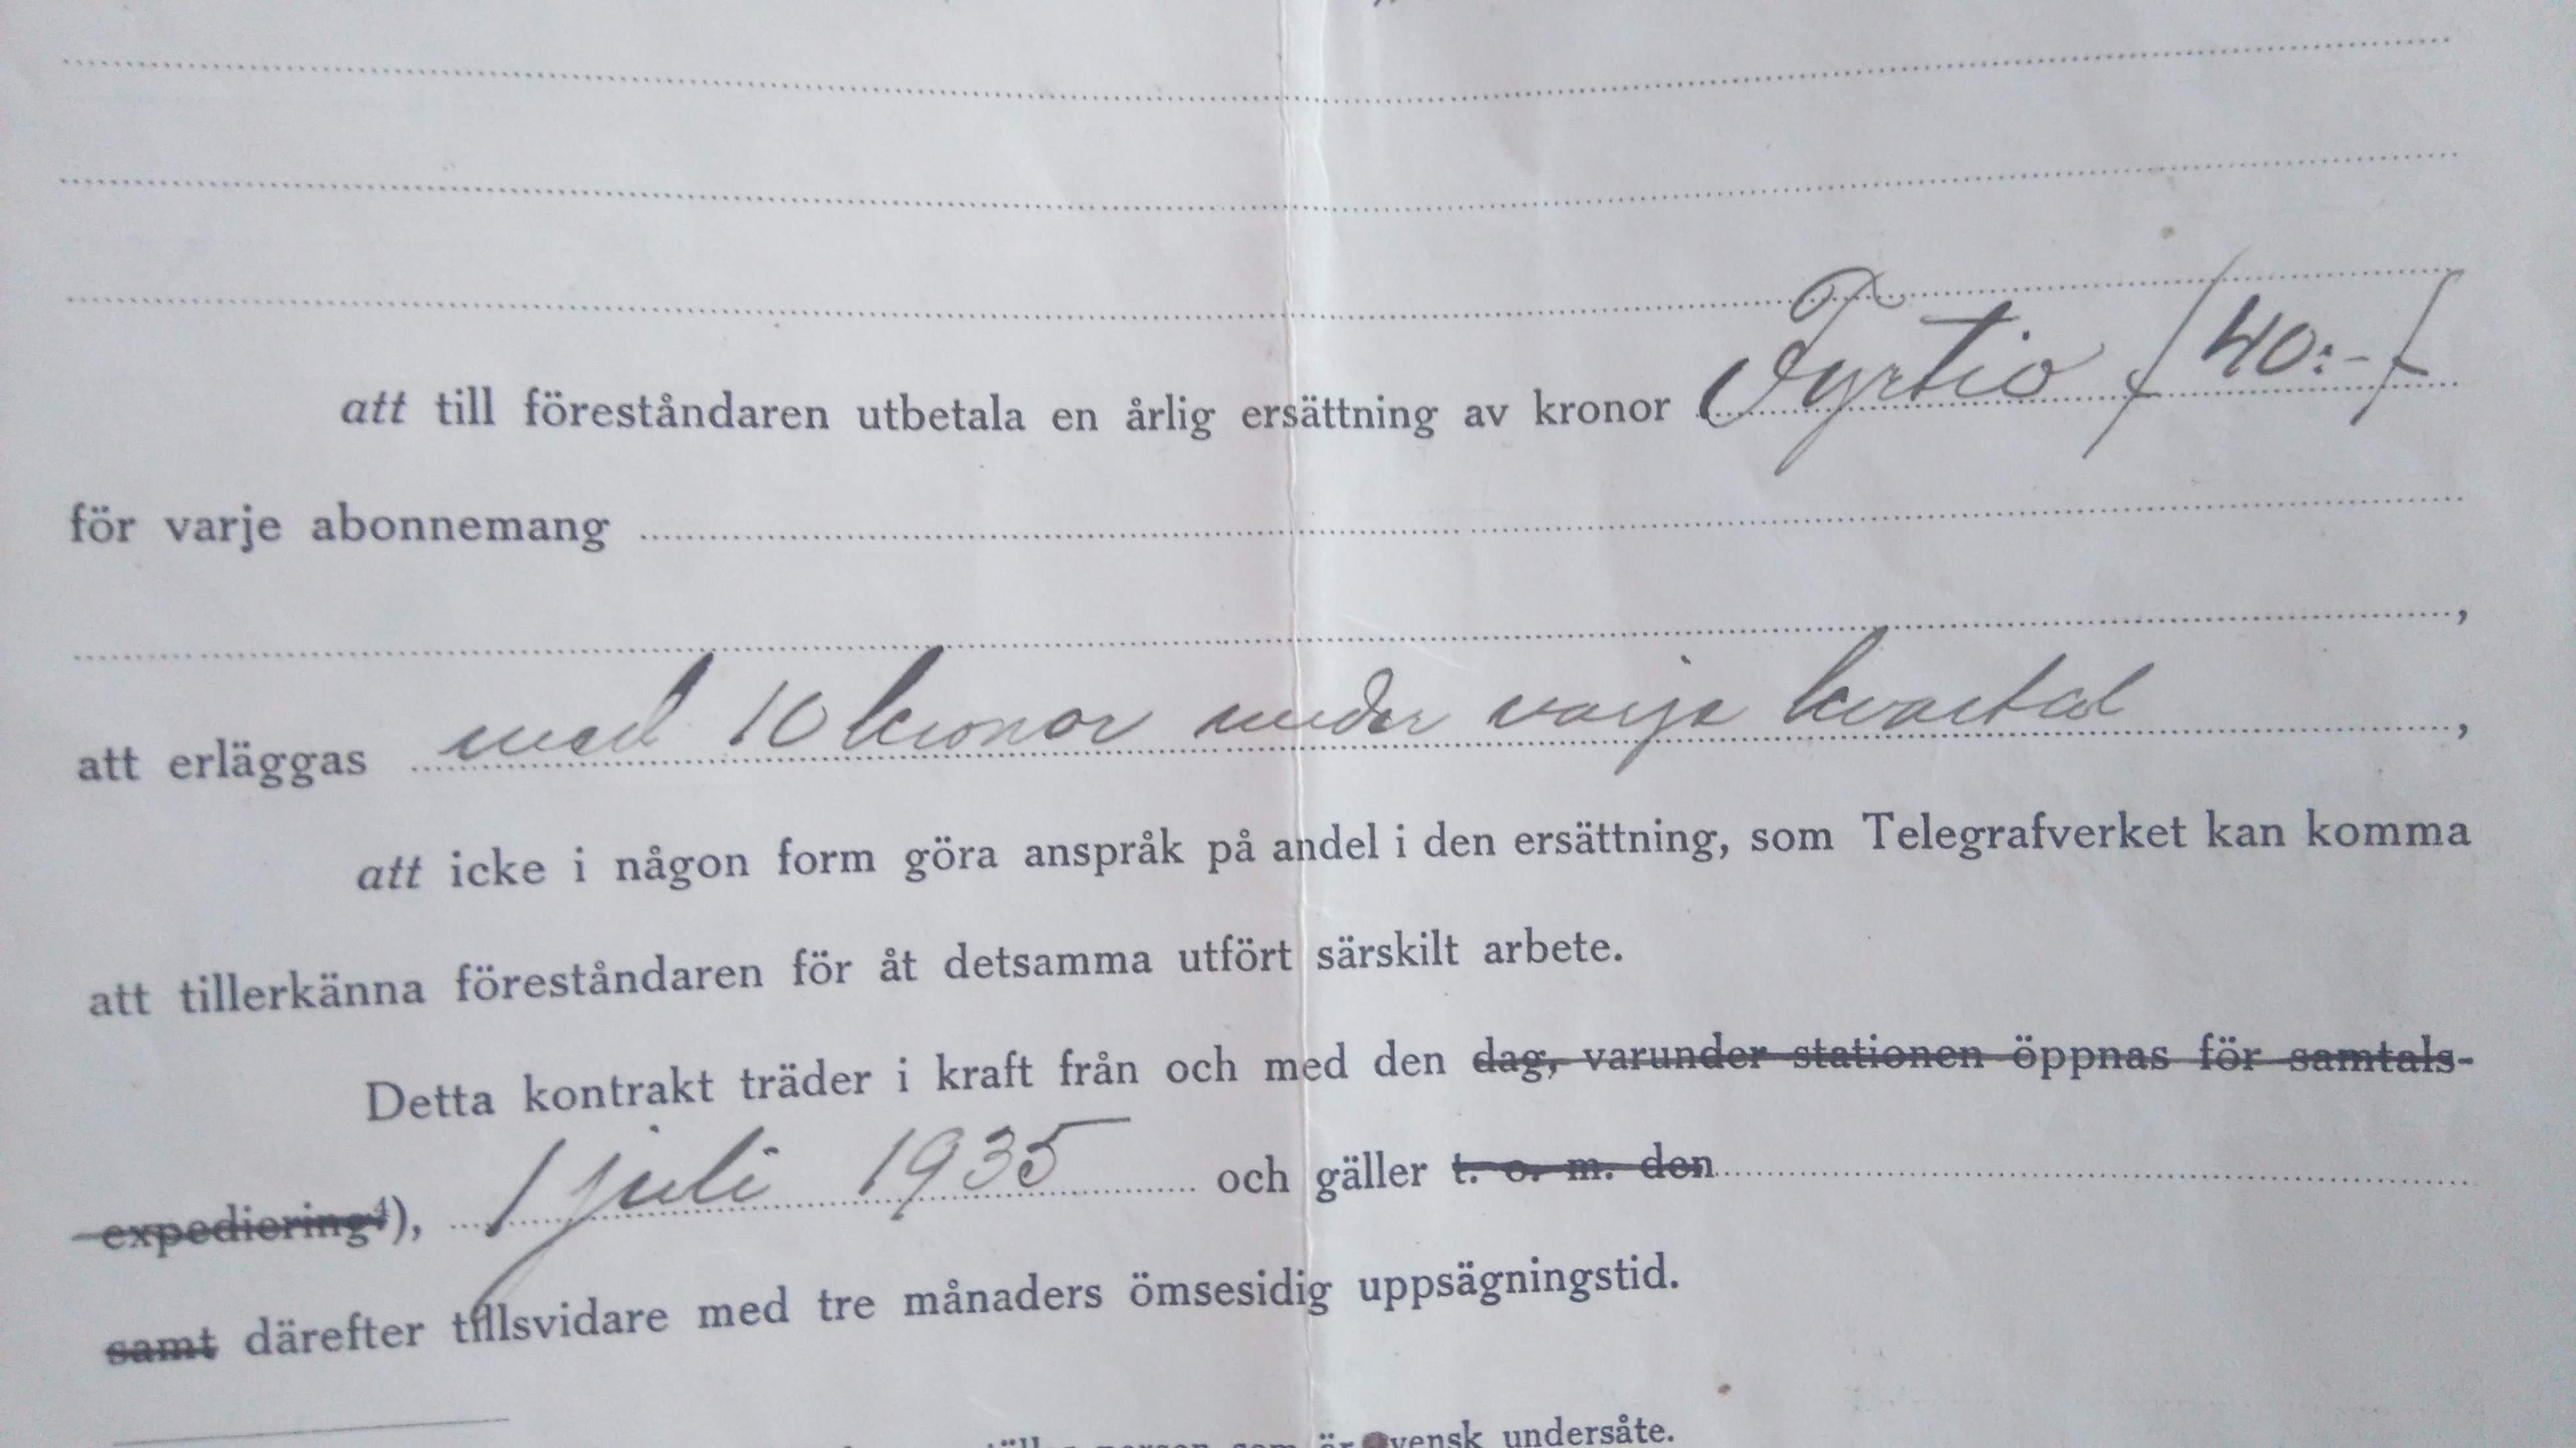 att till föreståndaren utbetala en årlig ersättning av kronor Fyrtio /40:-/
för varje abonnemang
,
att erläggas med 10 kronor under varje kvartal ,
att icke i någon form göra anspråk på andel i den ersättning, som Telegrafverket kan komma
att tillerkänna föreståndaren för åt detsamma utfört särskilt arbete.
Detta kontrakt träder i kraft från och med den dag, varunder stationen öppnas för samtals-
expediering⁴), 1 juli 1935 och gäller t. o. m. den
samt därefter tillsvidare med tre månaders ömsesidig uppsägningstid.
person som är svensk undersåte.